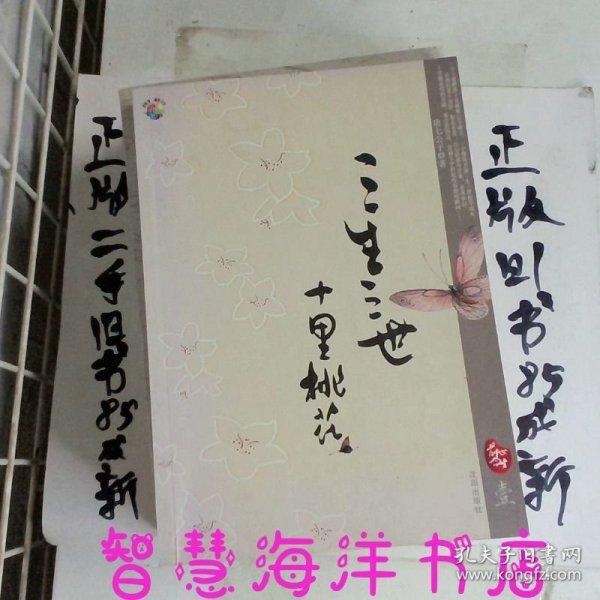 正版二手旧书85成新
唐七公子●著
三生三世
十里桃花
壹
沈阳出版社
正版旧书85成新
智慧海洋书店
孔夫子旧书网
www.kongfz.com